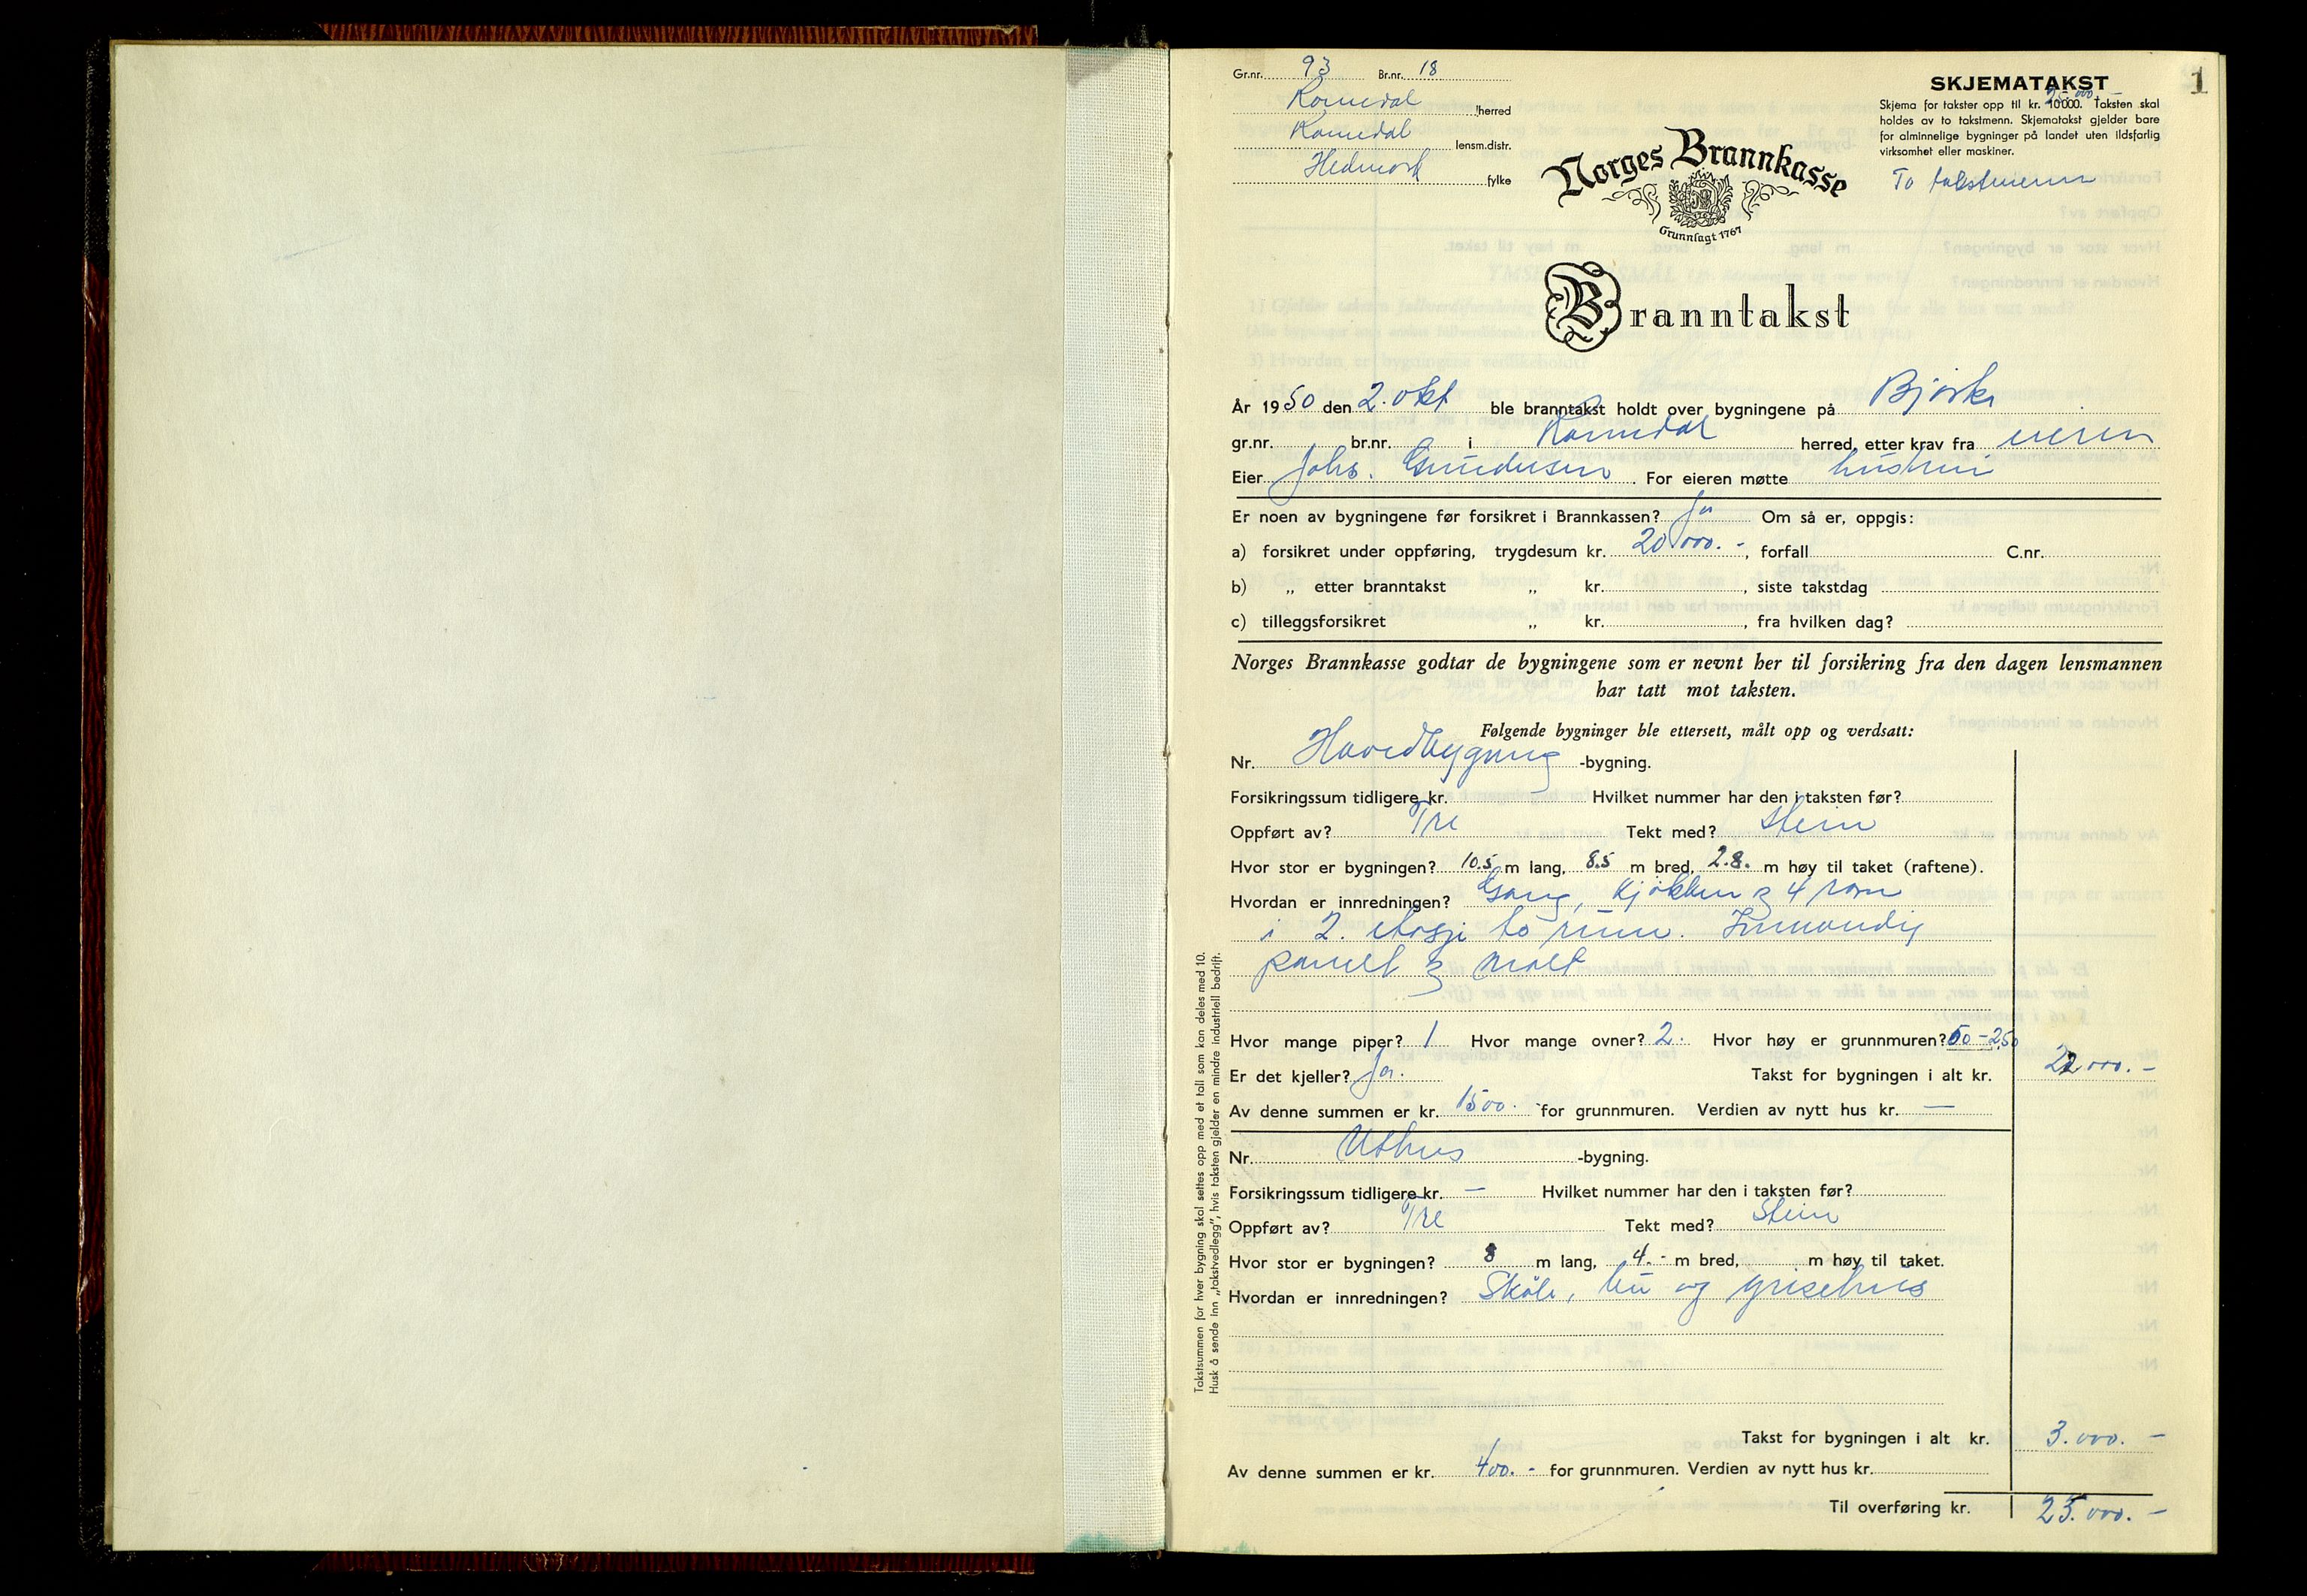 1
Gr.nr. 93 Br.nr. 18
Romedal herred
Romedal lensm.distr.
Hedmark fylke
SKJEMATAKST
Skjema for takster opp til kr. 10000. Taksten skal
holdes av to takstmenn. Skjematakst gjelder bare
for alminnelige bygninger på landet uten ildsfarlig
virksomhet eller maskiner.
To takstmenn
Norges Brannkasse
Grunnlagt 1767
Branntakst
År 1950 den 2. okt ble branntakst holdt over bygningene på Bjørke
gr.nr. br.nr. i Romedal herred, etter krav fra eieren
Eier Johs. Gundersen. For eieren møtte hustrui
Er noen av bygningene før forsikret i Brannkassen? Ja Om så er, oppgis:
a) forsikret under oppføring, trygdesum kr. 20 000.-, forfall C.nr.
b) „ etter branntakst „ kr. , siste takstdag
c) tilleggsforsikret „ kr. , fra hvilken dag?
Norges Brannkasse godtar de bygningene som er nevnt her til forsikring fra den dagen lensmannen
har tatt mot taksten.
Følgende bygninger ble ettersett, målt opp og verdsatt:
Nr. Hovedbygning -bygning.
Forsikringssum tidligere kr. Hvilket nummer har den i taksten før?
Oppført av? Tre Tekt med? Stein
Hvor stor er bygningen? 10.5 m lang, 8.5 m bred, 2.8. m høy til taket (raftene).
Hvordan er innredningen? Gang, kjøkken & 4 rom
i 2. etasje to rum. Innvendig
panelt & malt
Hvor mange piper? 1 Hvor mange ovner? 2. Hvor høy er grunnmuren? 50-2,50
Er det kjeller? Ja. Takst for bygningen i alt kr. 22 000.-
Av denne summen er kr. 1500.- for grunnmuren. Verdien av nytt hus kr. —
Nr. Uthus -bygning.
Forsikringssum tidligere kr. — Hvilket nummer har den i taksten før?
Oppført av? Tre Tekt med? Stein
Hvor stor er bygningen? 8 m lang, 4.- m bred, m høy til taket.
Hvordan er innredningen? Skåle, bu og grisehus
Takst for bygningen i alt kr. 3.000.-
Av denne summen er kr. 400.- for grunnmuren. Verdien av nytt hus kr.
Til overføring kr. 25.000.-
Takstsummen for hver bygning skal settes opp med et tall som kan deles med 10.
Husk å sende inn „takstvedlegg", hvis taksten gjelder en mindre industriell bedrift.